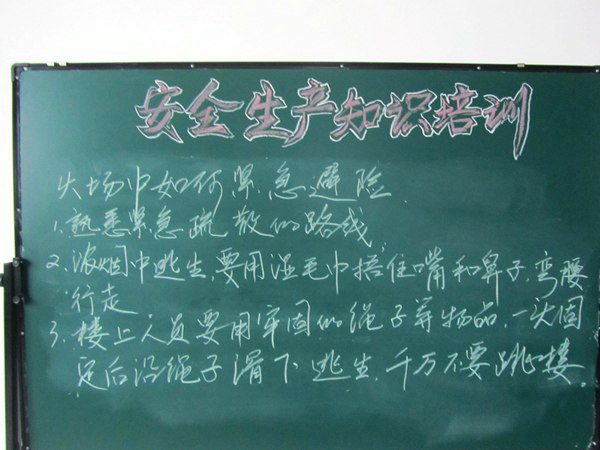 安全生产知识培训
火场中如何紧急避险
1.熟悉紧急疏散的路线,
2.浓烟中逃生,要用湿毛巾捂住嘴和鼻子,弯腰
行走
3.楼上人员要用牢固的绳子等物品,一头固
定后沿绳子滑下逃生,千万不要跳楼。